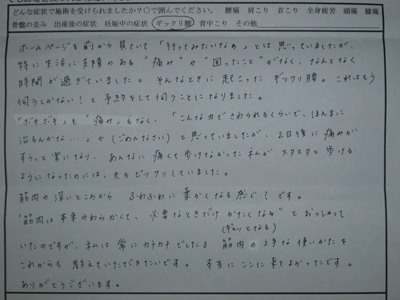 どんな症状で施術を受けられましたか？○で囲んでください。 腰痛 肩こり 首こり 全身疲労 頭痛 膝痛
骨盤の歪み 出産後の症状 妊娠中の症状 ギックリ腰 背中こり その他
ホームページを前から見ていて「行ってみたいなぁ」とは思っていましたが、
特に生活に支障のある"痛み"や"困ったこと"がなく、なんとなく
時間が過ぎていました。そんなときに起こったギックリ腰。これはもう
伺うしかない!と予約をして伺うことになりました。
「ボキボキ」も"痛み"もなく、「こんな力でさわられるくらいで、ほんまに
治るんかな…」や(ごめんなさい)と思っていましたが、2日後に痛みが
すっと楽になり、あんなに痛くて歩けなかった私がスタスタと歩ける
ようになったのには、夫もビックリしていました。
筋肉の深いところから ふわふわに柔かくなる感じ?です。
"筋肉は本来やわらかくて、必要なときだけかたくなる"とおっしゃって
(ギュッとなる)
いたのですが、私は常にカチカチでしたので 筋肉の上手な使いかたを
これからも教えていただきたいです。本当にここに来てよかったです。
ありがとうございます。